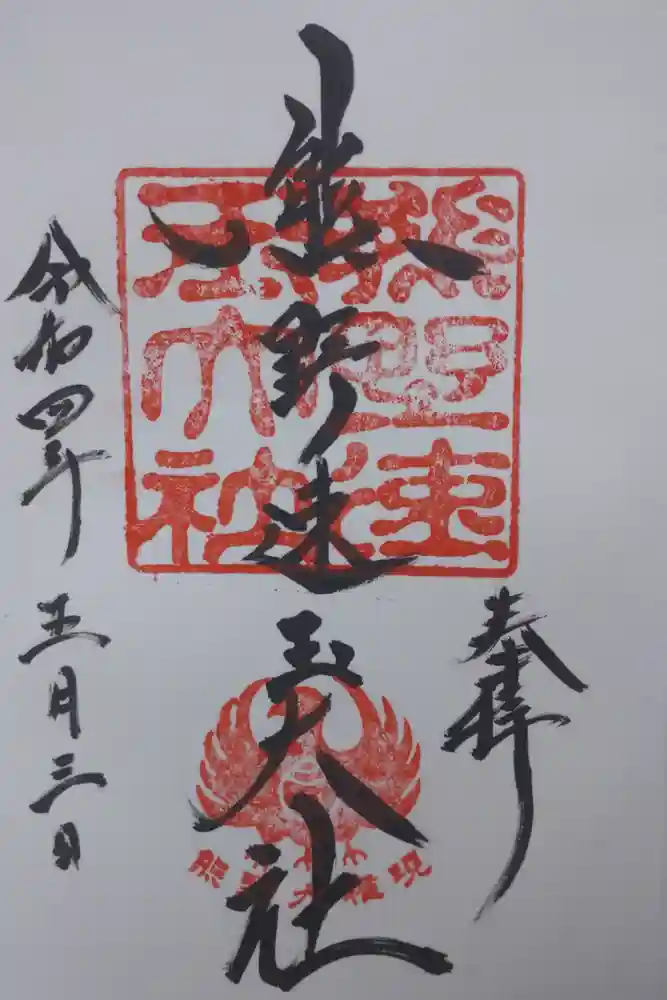 奉拝
熊野速玉大社
令和四年五月三日
熊野速
玉大社
熊野大権現